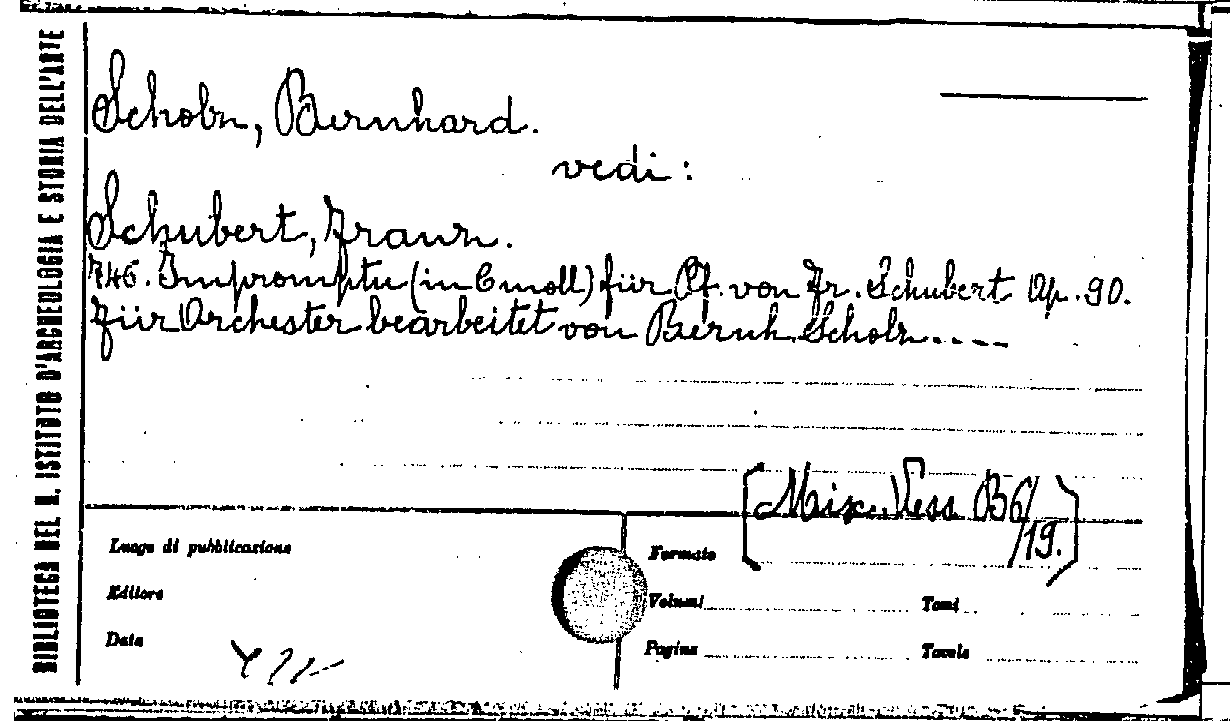 BIBLIOTECA DEL R. ISTITUTO D'ARCHEOLOGIA E STORIA DELL'ARTE
Scholz, Bernhard.
vedi:
Schubert, Franz.
746. Impromptu (in C moll) für Pf. von Fr. Schubert Op. 90.
Für Orchester bearbeitet von Bernh. Scholz....
[Mix. Vess. B6/
/19.]
Luogo di pubblicazione
Formato
Editore
Volumi
Tomi
Data
Pagine
Tavole